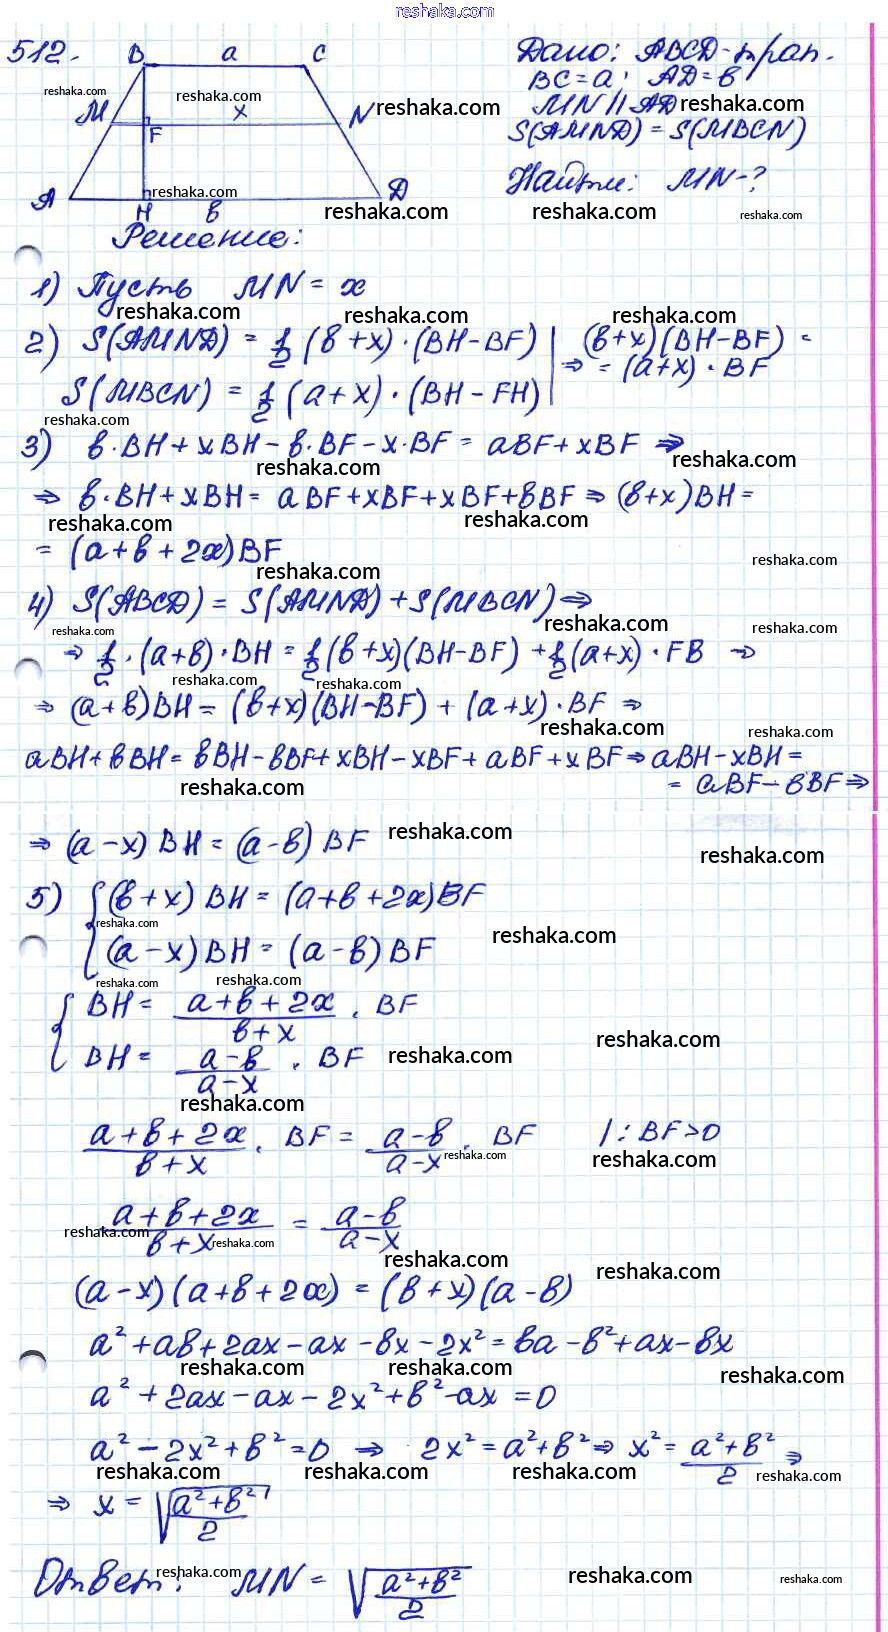 reshaka.com
512.
B a C
M x N
F
A H b D
Дано: ABCD - трап.
BC = a; AD = b
MN || AD
S(AMND) = S(MBCN)
Найти: MN - ?
Решение:
1) Пусть MN = x
2) S(AMND) = 1/2 (b + x) · (BH - BF) | (b + x)(BH - BF) =
S(MBCN) = 1/2 (a + x) · (BH - FH) | ⇒ = (a + x) · BF
3) b · BH + xBH - b · BF - x · BF = aBF + xBF ⇒
⇒ b · BH + xBH = aBF + xBF + xBF + bBF ⇒ (b + x)BH =
= (a + b + 2x)BF
4) S(ABCD) = S(AMND) + S(MBCN) ⇒
⇒ 1/2 · (a + b) · BH = 1/2 (b + x)(BH - BF) + 1/2 (a + x) · FB ⇒
⇒ (a + b)BH = (b + x)(BH - BF) + (a + x) · BF ⇒
aBH + bBH = bBH - bBF + xBH - xBF + aBF + xBF ⇒ aBH - xBH =
= aBF - bBF ⇒
⇒ (a - x)BH = (a - b)BF
5) { (b + x)BH = (a + b + 2x)BF
(a - x)BH = (a - b)BF
{ BH = (a + b + 2x)/(b + x) · BF
BH = (a - b)/(a - x) · BF
(a + b + 2x)/(b + x) · BF = (a - b)/(a - x) · BF | : BF > 0
(a + b + 2x)/(b + x) = (a - b)/(a - x)
(a - x)(a + b + 2x) = (b + x)(a - b)
a² + ab + 2ax - ax - bx - 2x² = ba - b² + ax - bx
a² + 2ax - ax - 2x² + b² - ax = 0
a² - 2x² + b² = 0 ⇒ 2x² = a² + b² ⇒ x² = (a² + b²)/2 ⇒
⇒ x = √((a² + b²)/2)
Ответ: MN = √((a² + b²)/2)